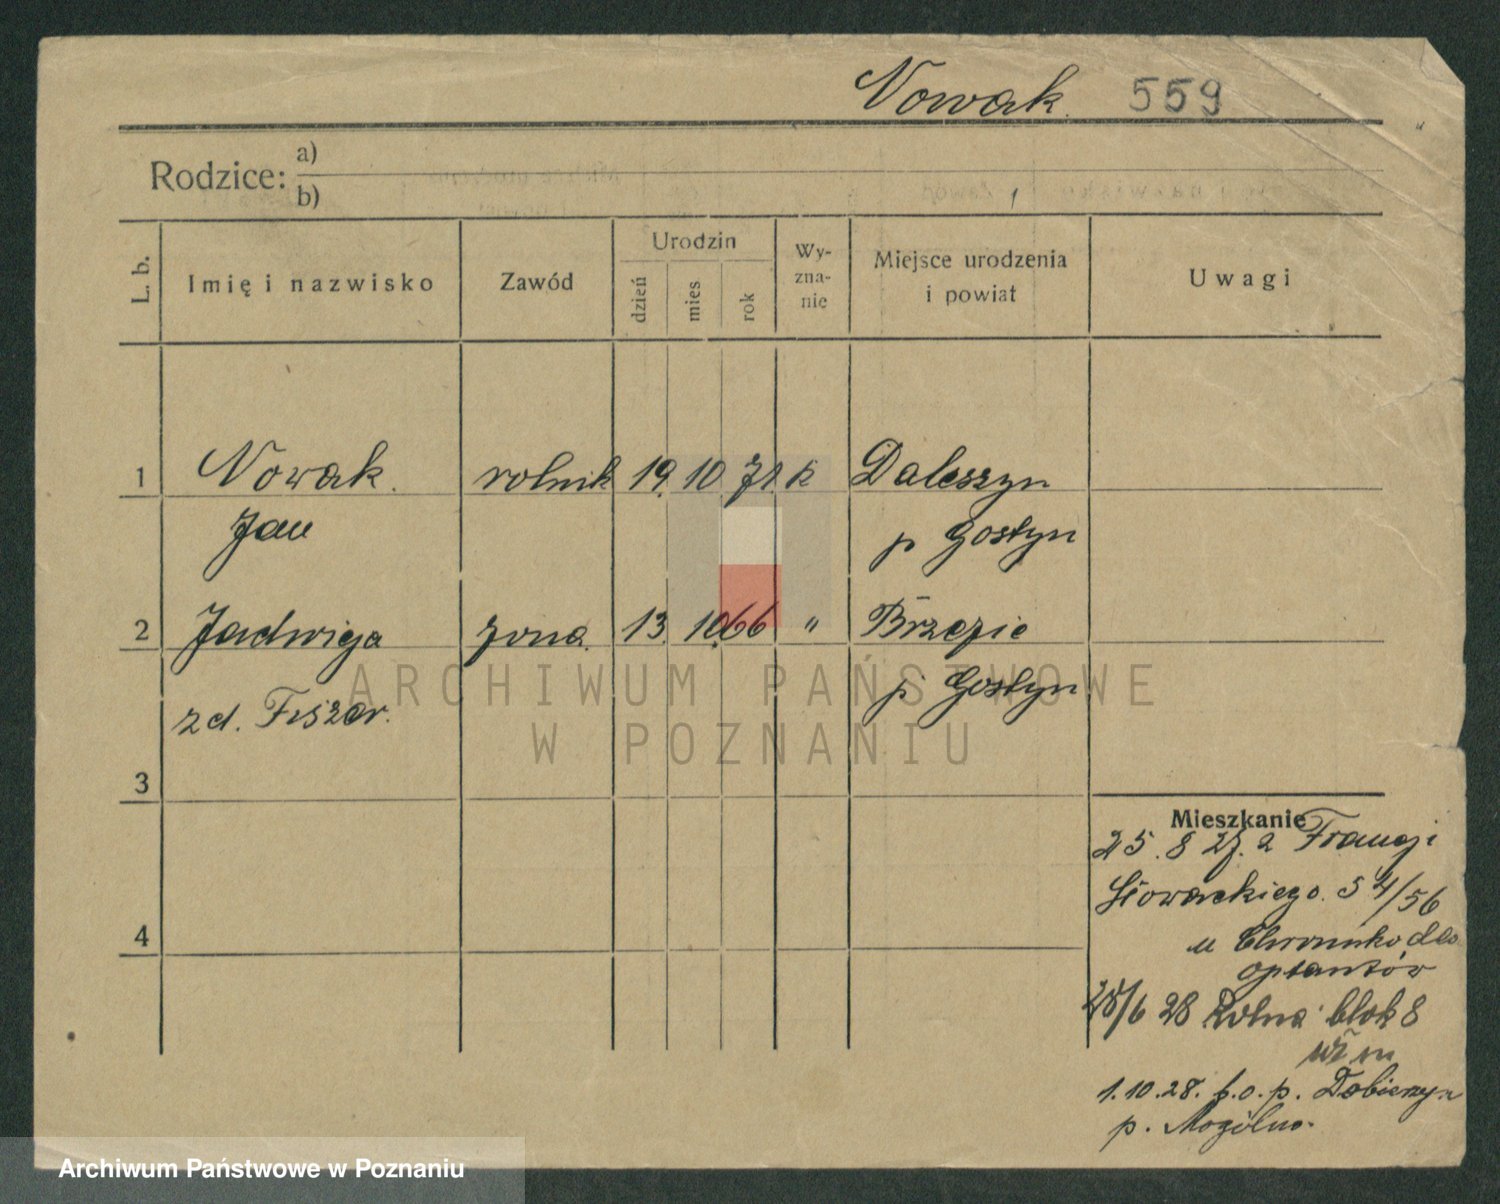 Nowak. 559
Rodzice: a)
b)
L. b. Imię i nazwisko Zawód Urodzin dzień mies rok Wy-zna-nie Miejsce urodzenia i powiat Uwagi
1 Nowak. rolnik 19. 10. 71. k Daleszyn
Jan p Gostyn
2 Jadwiga żona. 13. 10.66 " Brzezie
zd. Fiszer. p. Gostyn
3
4
Mieszkanie
25. 8 27. z Francji
Słowackiego. 54/56
u
optantów
28/6 28 Rolna blok 8
m
1.10.28. p. Dobieszyn
p. Mogilno.
ARCHIWUM PAŃSTWOWE
W POZNANIU
Archiwum Państwowe w Poznaniu